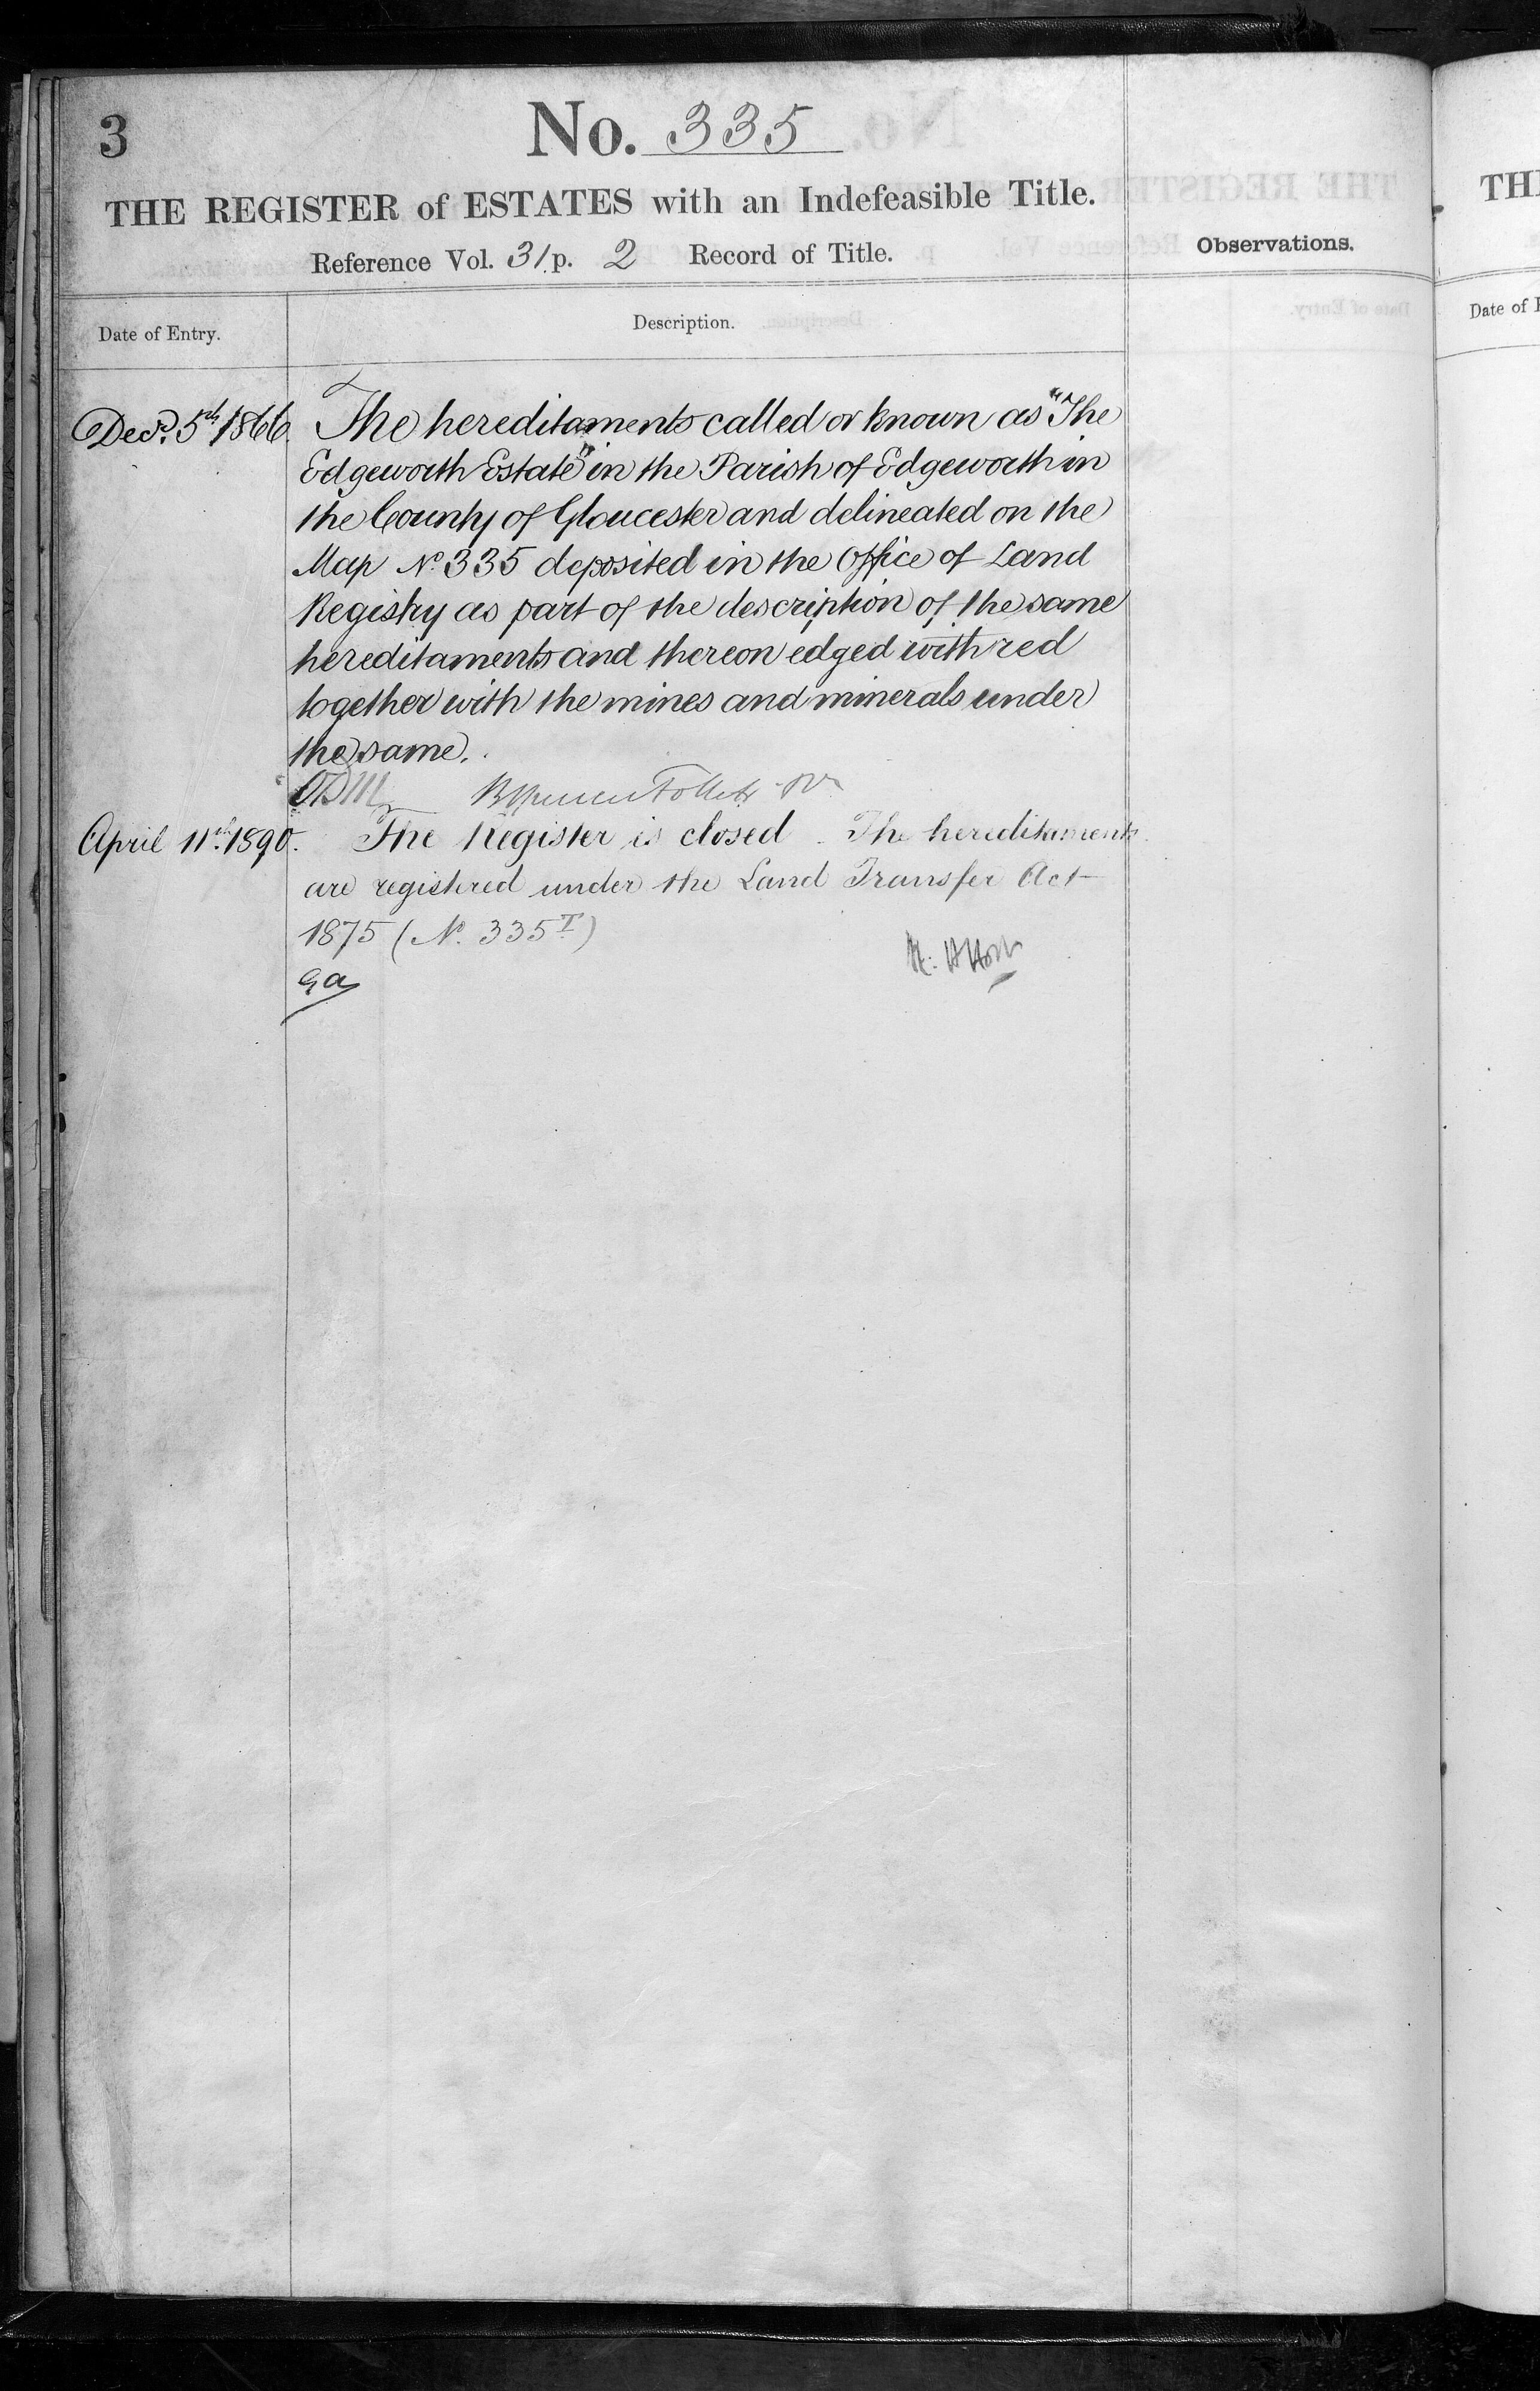 3
No. 335
THE REGISTER of ESTATES with an Indefeasible Title.
Reference Vol. 31 p. 2 Record of Title.
Observations.
Date of Entry.
Description.
Decr. 5th 1866.
The hereditaments called or known as "The
Edgeworth Estate" in the Parish of Edgeworth in
the County of Gloucester and delineated on the
Map No. 335 deposited in the Office of Land
Registry as part of the description of the same
hereditaments and thereon edged with red
together with the mines and minerals under
the same.
April 11th. 1890.
The Register is closed. The hereditaments
are registered under the Land Transfer Act
1875 (No. 335T)
TH
Date of